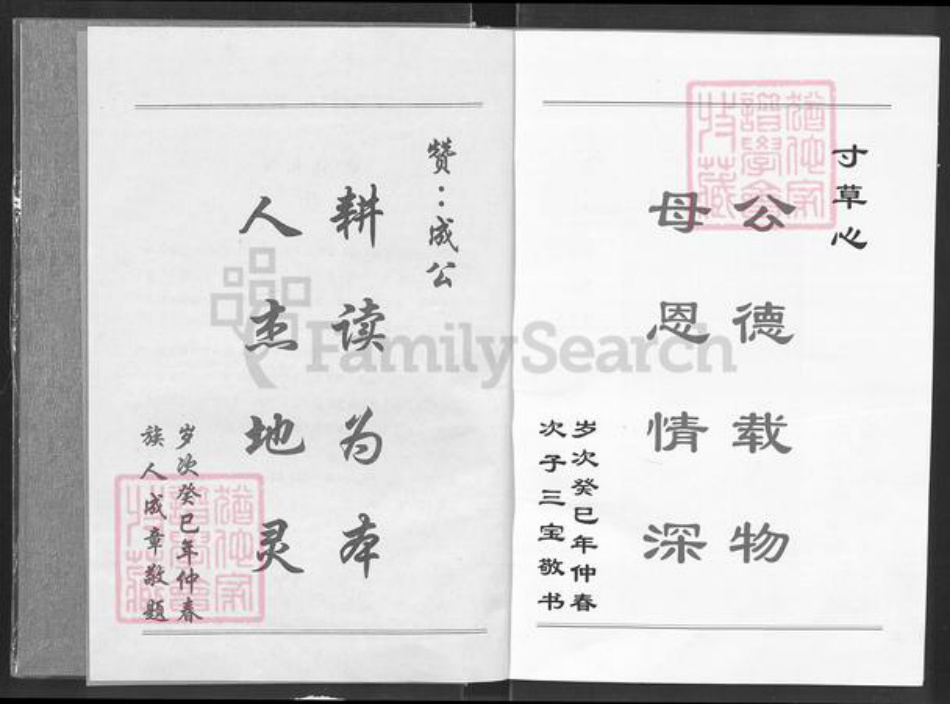 寸草心
公德载物
母恩情深
岁次癸巳年仲春
次子三宝敬书
赞：成公
耕读为本
人杰地灵
岁次癸巳年仲春
族人成章敬题
FamilySearch